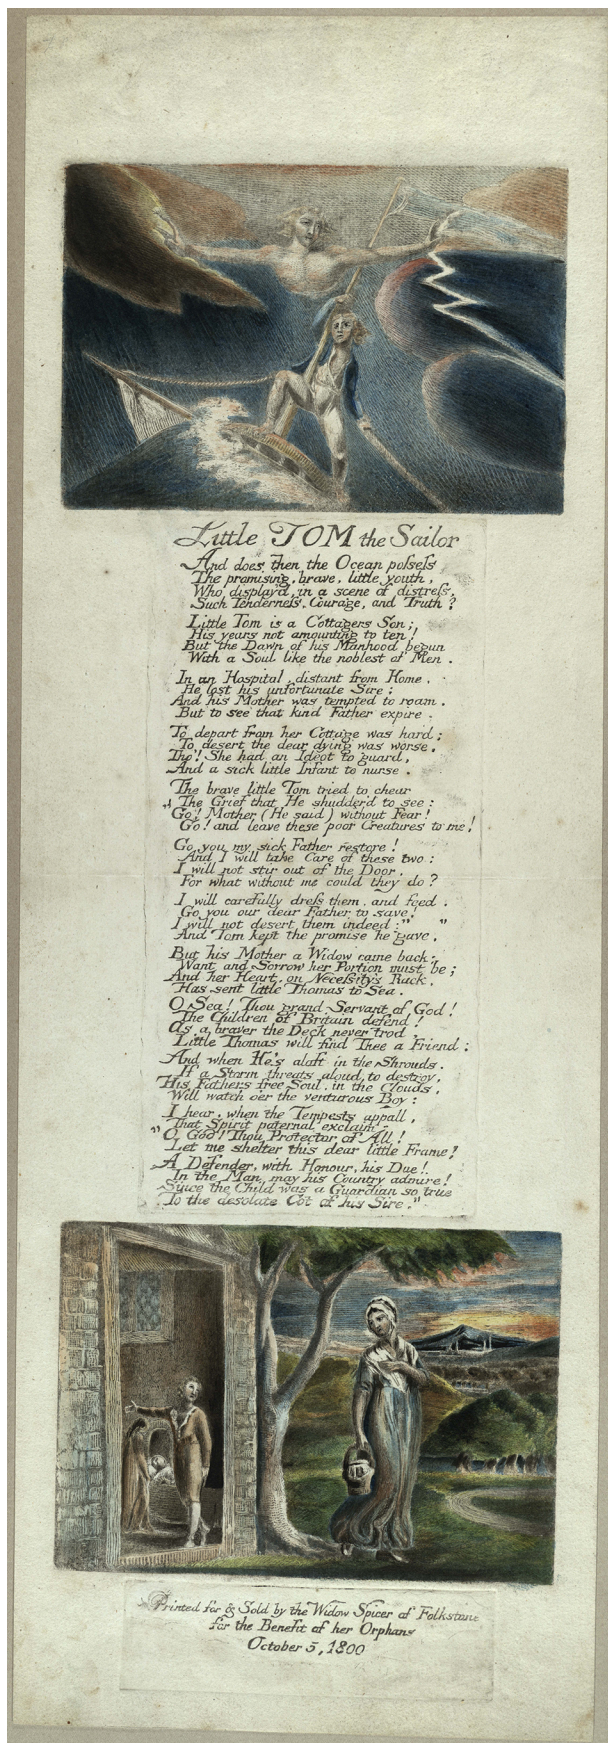 Little TOM the Sailor
And does then the Ocean possess
The promising, brave, little youth,
Who display'd, in a scene of distress,
Such Tenderness, Courage, and Truth?
Little Tom is a Cottagers Son;
His years not amounting to ten!
But the Dawn of his Manhood begun
With a Soul like the noblest of Men.
In an Hospital, distant from Home,
He lost his unfortunate Sire;
And his Mother was tempted to roam,
But to see that kind Father expire.
To depart from her Cottage was hard;
To desert the dear dying was worse,
Tho'! She had an Ideot to guard,
And a sick little Infant to nurse.
The brave little Tom tried to chear
The Grief that He shudder'd to see:
„Go! Mother (He said) without Fear!
Go! and leave these poor Creatures to me!
Go you my sick Father restore!
And I will take Care of these two:
I will not stir out of the Door,
For what without me could they do?
I will carefully dress them, and feed,
Go you our dear Father to save,
I will not desert them indeed:" "
And Tom kept the promise he gave.
But his Mother a Widow came back;
Want and Sorrow her Portion must be;
And her Heart, on Necessity's Rack,
Has sent little Thomas to Sea.
O Sea! Thou grand Servant of God!
The Children of Britain defend!
As a braver the Deck never trod,
Little Thomas will find Thee a Friend:
And when He's aloft in the Shrouds,
If a Storm threats aloud, to destroy,
His Fathers free Soul, in the Clouds,
Will watch o'er the venturous Boy:
I hear, when the Tempests appall,
That Spirit paternal exclaim,
"O God! Thou Protector of All!
Let me shelter this dear little Frame!
A Defender, with Honour, his Due!
In the Man, may his Country admire!
Since the Child was a Guardian so true
To the desolate Cot of his Sire."
Printed for & Sold by the Widow Spicer of Folkstone
for the Benefit of her Orphans
October 5, 1800